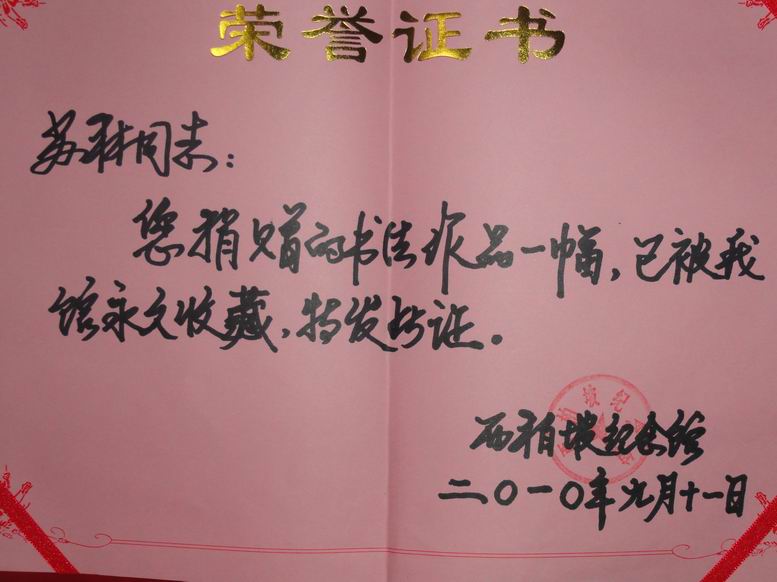 荣誉证书
苏林同志：
您捐赠的书法作品一幅，已被我
馆永久收藏，特发此证。
西柏坡纪念馆
二〇一〇年九月十一日